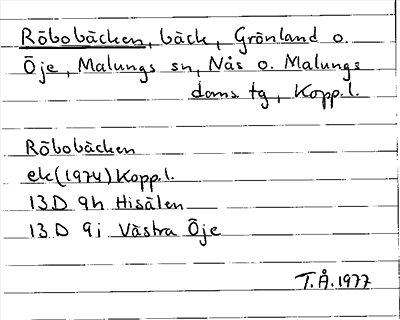 Röbobäcken, bäck, Grönland o.
Öje, Malungs sn, Nås o. Malungs
doms. tg, Kopp.l.
Röbobäcken
ek(1974)Kopp.l.
13D 9h Hisälen
13D 9i Västra Öje
T.Å.1977